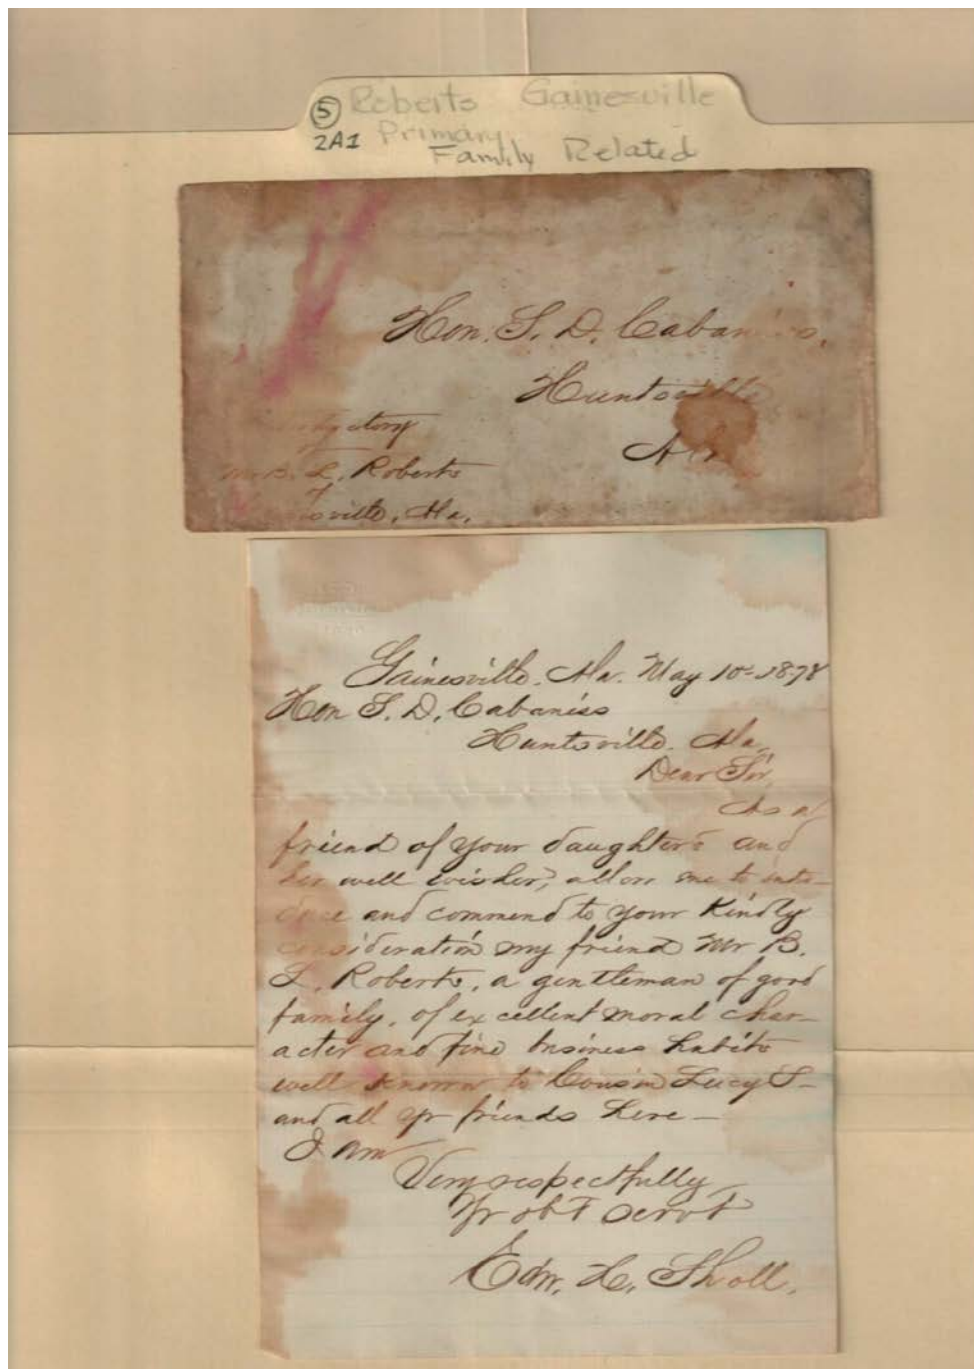 ⑤ Roberts Gainesville
2A1 Primary
Family Related
Hon. S. D. Cabaniss,
Huntsville
Ala
B. L. Roberts
of
ville, Ala.
Gainesville. Ala. May 10th 1878
Hon S. D. Cabaniss
Huntsville. Ala.
Dear Sir,
As a
friend of your daughters and
her well wisher, allow me to intro-
duce and commend to your kindly
consideration my friend Mr B.
L. Roberts, a gentleman of good
family, of excellent moral char-
acter and fine business habits
well known to Cousin Lucy S—
and all yr friends here —
I am
Very respectfully
Yr obt servt
Edw. H. Sholl.